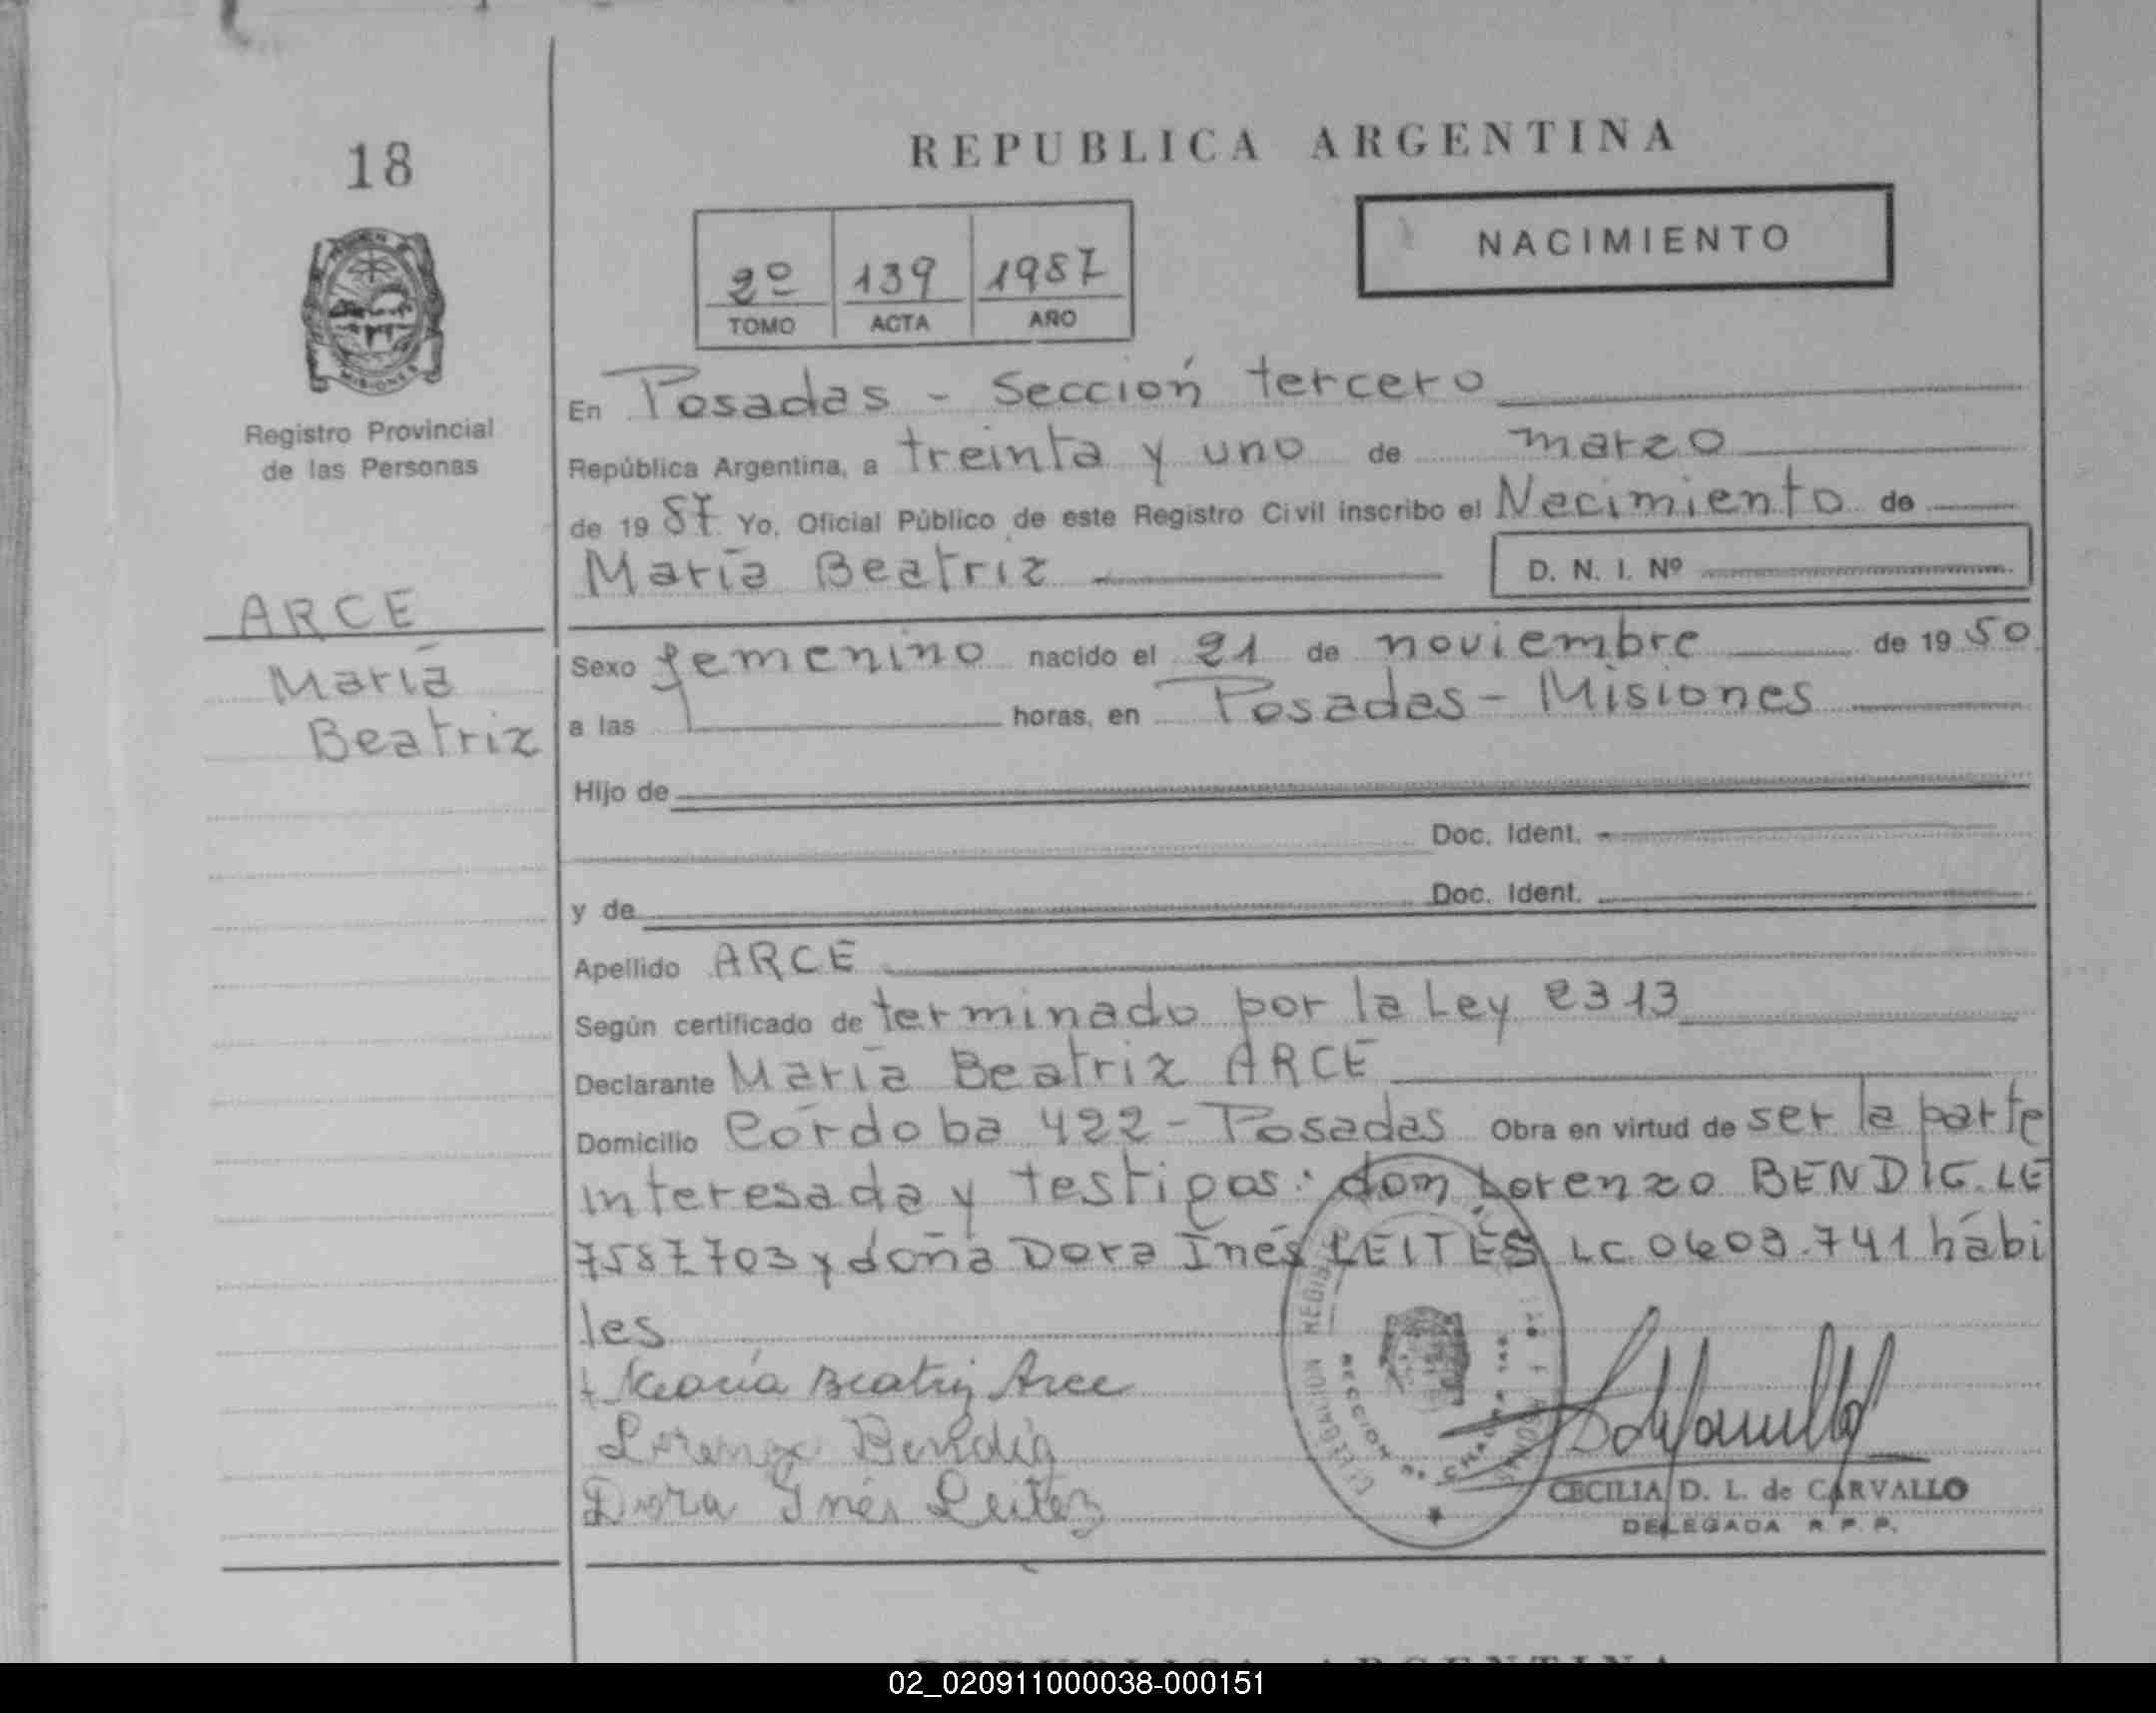 REPUBLICA ARGENTINA
18
NACIMIENTO
2º 139 1987
TOMO ACTA AÑO
MISIONES
Registro Provincial
de las Personas
ARCE
María
Beatriz
En Posadas - Sección tercero
República Argentina, a treinta y uno de marzo
de 19 87 Yo, Oficial Público de este Registro Civil inscribo el Nacimiento de
María Beatriz D. N. I. Nº
Sexo femenino nacido el 21 de noviembre de 19 50
a las horas, en Posadas - Misiones
Hijo de
Doc. Ident.
y de Doc. Ident.
Apellido ARCE
Según certificado de terminado por la Ley 2313
Declarante María Beatriz ARCE
Domicilio Córdoba 422 - Posadas Obra en virtud de ser la parte
interesada y testigos: don Lorenzo BENDIG. LE
7587703 y doña Dora Inés LEITES LC 0603.741 hábi
les
María Beatriz Arce
Lorenzo Bendig
Dora Inés Leitez
DELEGACION
SECCION
CECILIA D. L. de CARVALLO
DELEGADA R. P. P.
REPUBLICA ARGENTINA
02_020911000038-000151